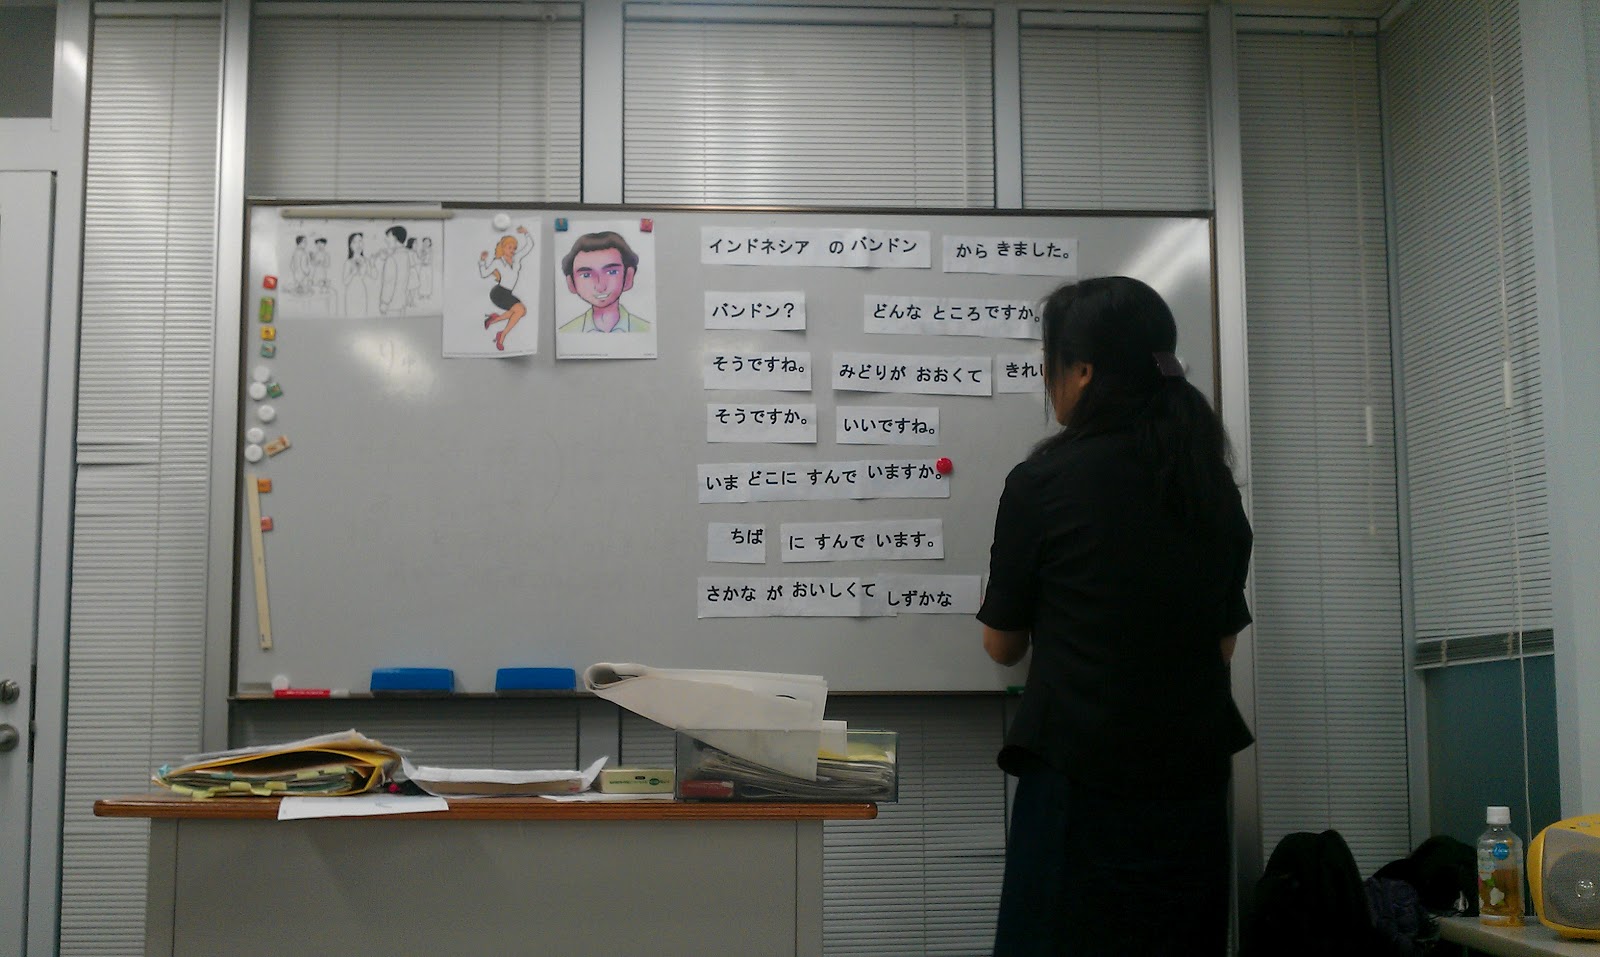 インドネシア の バンドン から きました。
バンドン? どんな ところですか。
そうですね。 みどりが おおくて きれ
そうですか。 いいですね。
いま どこに すんで いますか。
ちば に すんで います。
さかな が おいしくて しずかな
りゅ